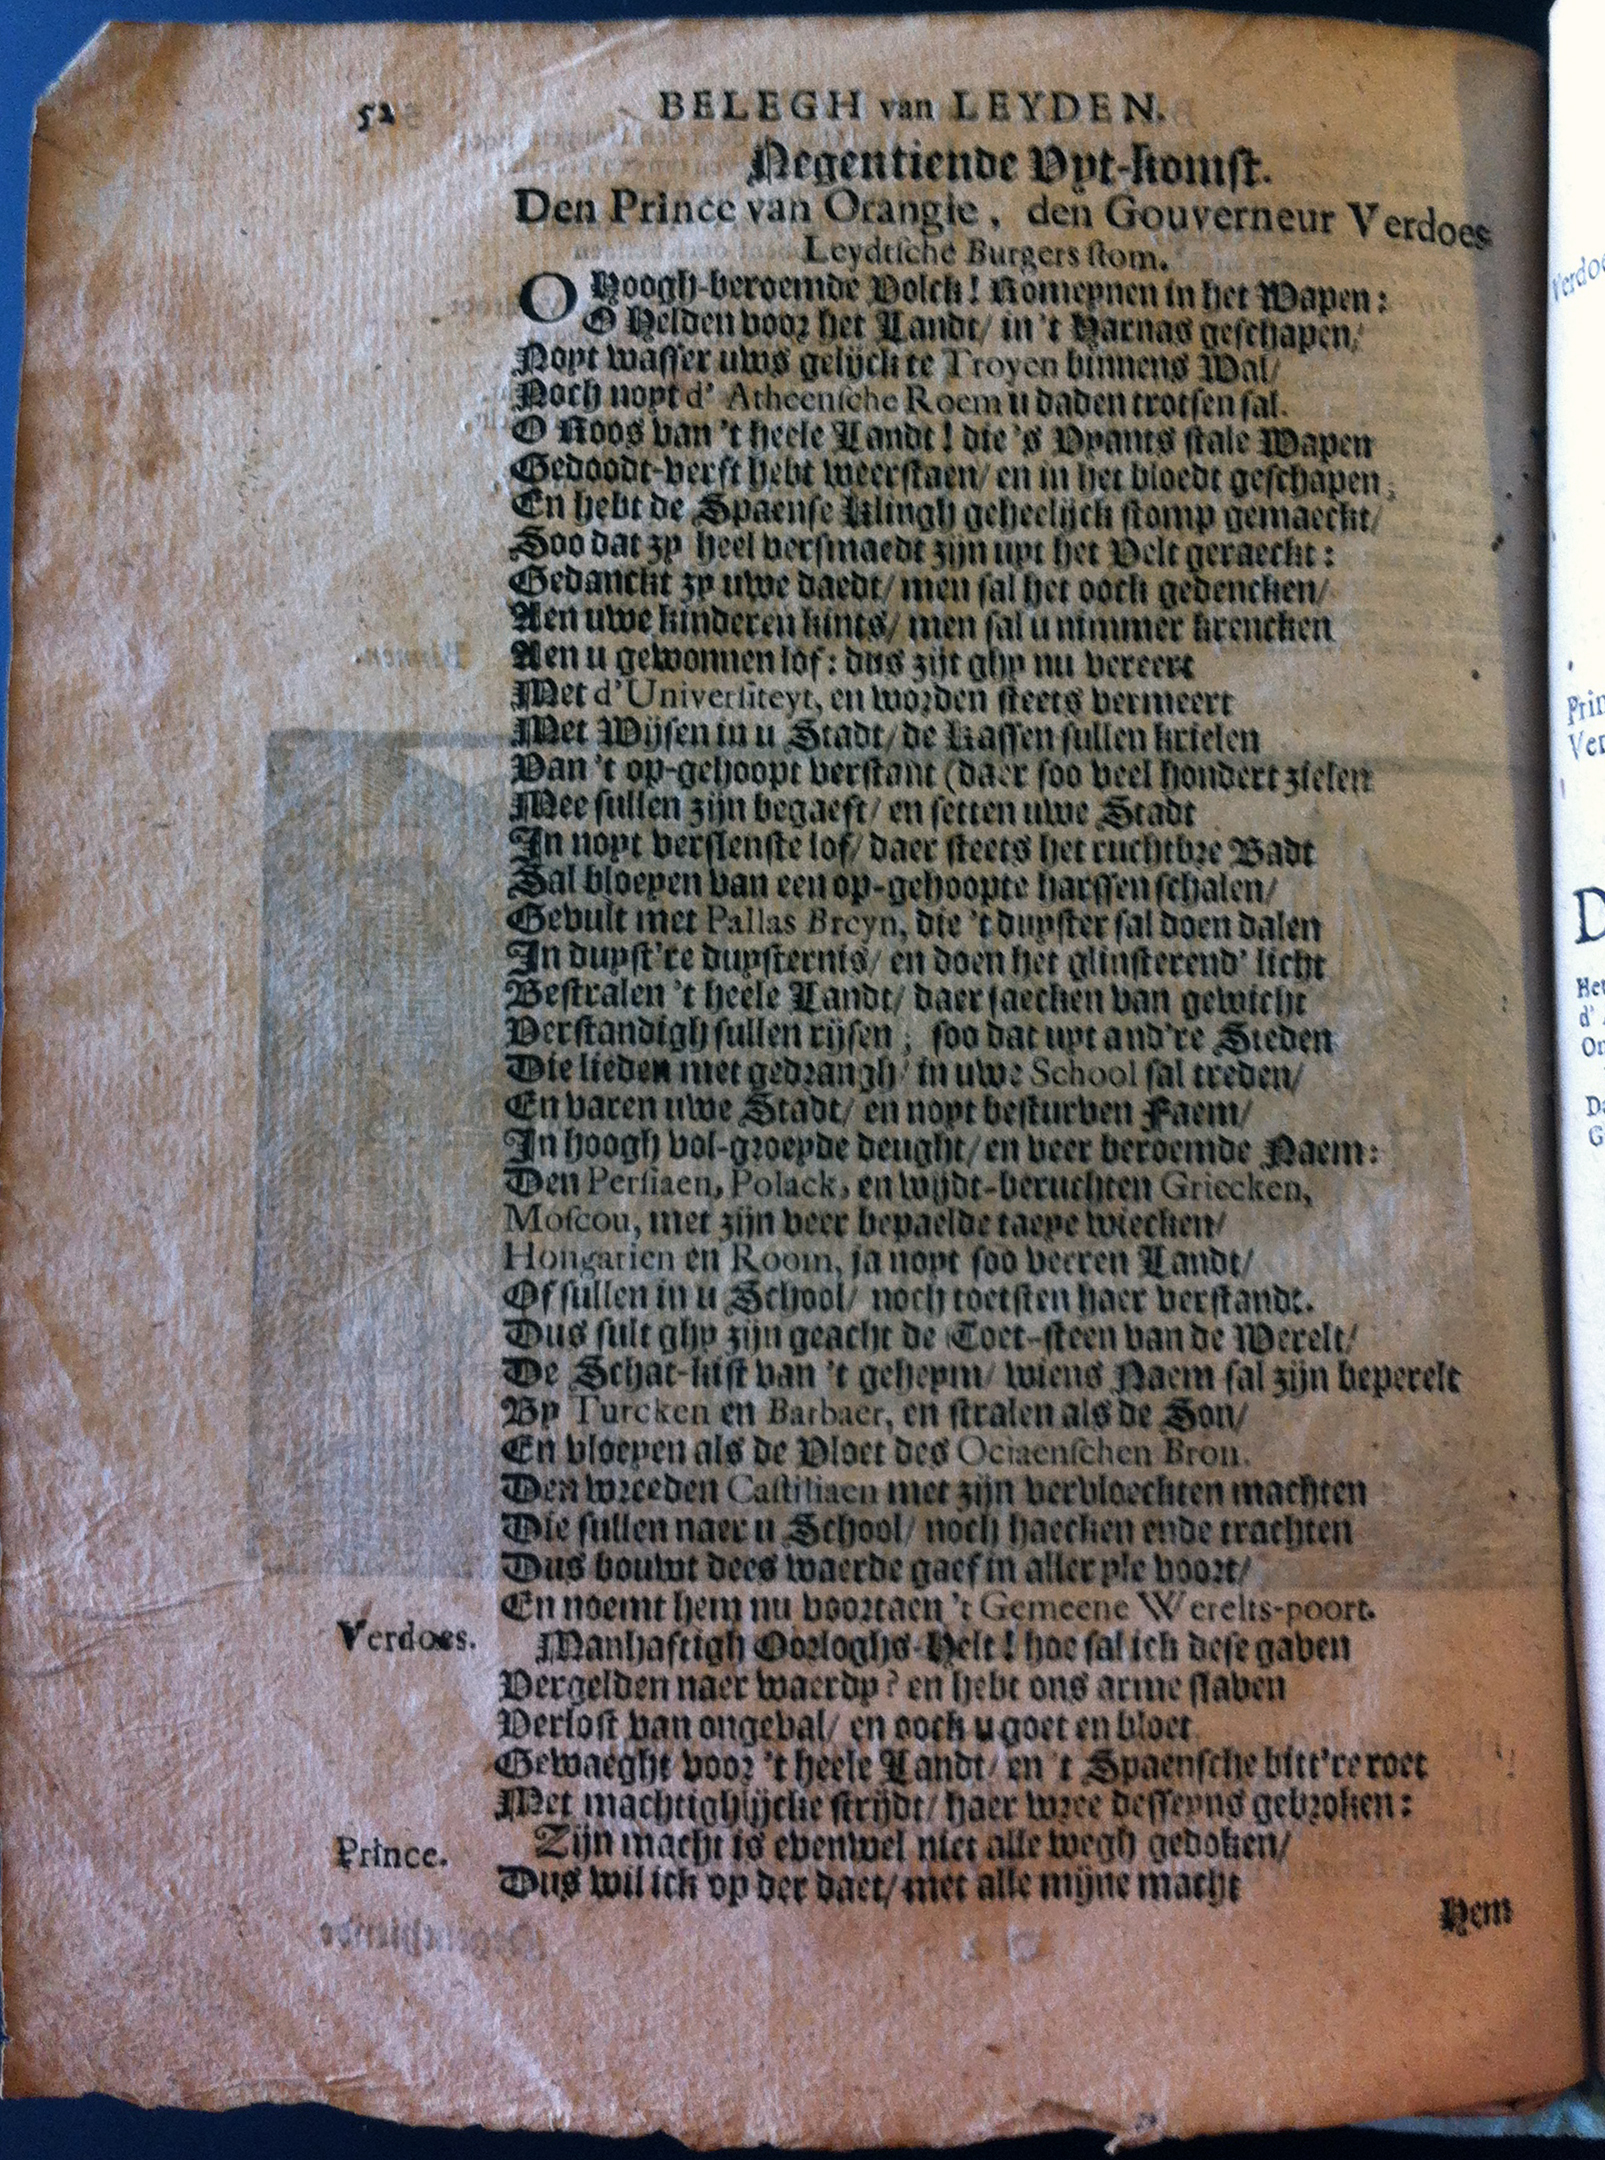 52 BELEGH van LEYDEN.
Negentiende Uyt-komst.
Den Prince van Orangie, den Gouverneur Verdoes
Leydtsche Burgers stom.
O Hoogh-beroemde Volck! Romeynen in het Wapen:
O Helden voor het Landt/ in 't Harnas geschapen/
Noyt wasser uws gelijck te Troyen binnens Wal/
Noch noyt d' Atheensche Roem u daden trotsen sal.
O Roos van 't heele Landt! die 's Vyants stale Wapen
Gedoodt-verft hebt weerstaen/ en in het bloedt geschapen;
En hebt de Spaense Klingh geheelijck stomp gemaeckt/
Soo dat zy heel versmaedt zijn uyt het Velt geraeckt:
Gedanckt zy uwe daedt/ men sal het oock gedencken/
Aen uwe kinderen kints/ men sal u nimmer krencken
Aen u gewonnen lof: dus zijt ghy nu vereert
Met d'Universiteyt, en worden steets vermeert
Met Wijsen in u Stadt/ de Kassen sullen krielen
Van 't op-gehoopt verstant (daer soo veel hondert zielen
Mee sullen zijn begaeft/ en setten uwe Stadt
In noyt verslenste lof/ daer steets het ruchtbre Badt
Sal bloeyen van een op-gehoopte harssen schalen/
Gevult met Pallas Breyn, die 't duyster sal doen dalen
In duyst're duysternis/ en doen het glinsterend' licht
Bestralen 't heele Landt/ daer saecken van gewicht
Verstandigh sullen rijsen; soo dat uyt and're Steden
Die lieden met gedrangh/ in uwe School sal treden/
En varen uwe Stadt/ en noyt besturven Faem/
In hoogh vol-groeyde deught/ en veer beroemde Naem:
Den Persiaen, Polack, en wijdt-beruchten Griecken,
Moscou, met zijn veer bepaelde taeye wiecken/
Hongarien en Room, ja noyt soo verren Landt/
Of sullen in u School/ noch toetsten haer verstandt.
Dus sult ghy zijn geacht de Toet-steen van de Werelt/
De Schat-kist van 't geheym/ wiens Naem sal zijn beperelt
By Turcken en Barbaer, en stralen als de Son/
En vloeyen als de Vloet des Ociaenschen Bron.
Den wreeden Castiliaen met zijn vervloeckten machten
Die sullen naer u School/ noch haecken ende trachten
Dus bouwt dees waerde gaef in aller yle voort/
En noemt hem nu voortaen 't Gemeene Werelts-poort.
Verdoes. Manhaftigh Oorloghs-Helt! hoe sal ick dese gaven
Vergelden naer waerdy? en hebt ons arme slaven
Verlost van ongeval/ en oock u goet en bloet
Gewaeght voor 't heele Landt/ en 't Spaensche bitt're roet
Met machtighlijcke strijdt/ haer wree desseyns gebroken:
Prince. Zijn macht is evenwel niet alle wegh gedoken/
Dus wil ick op der daet/ met alle mijne macht
Hem